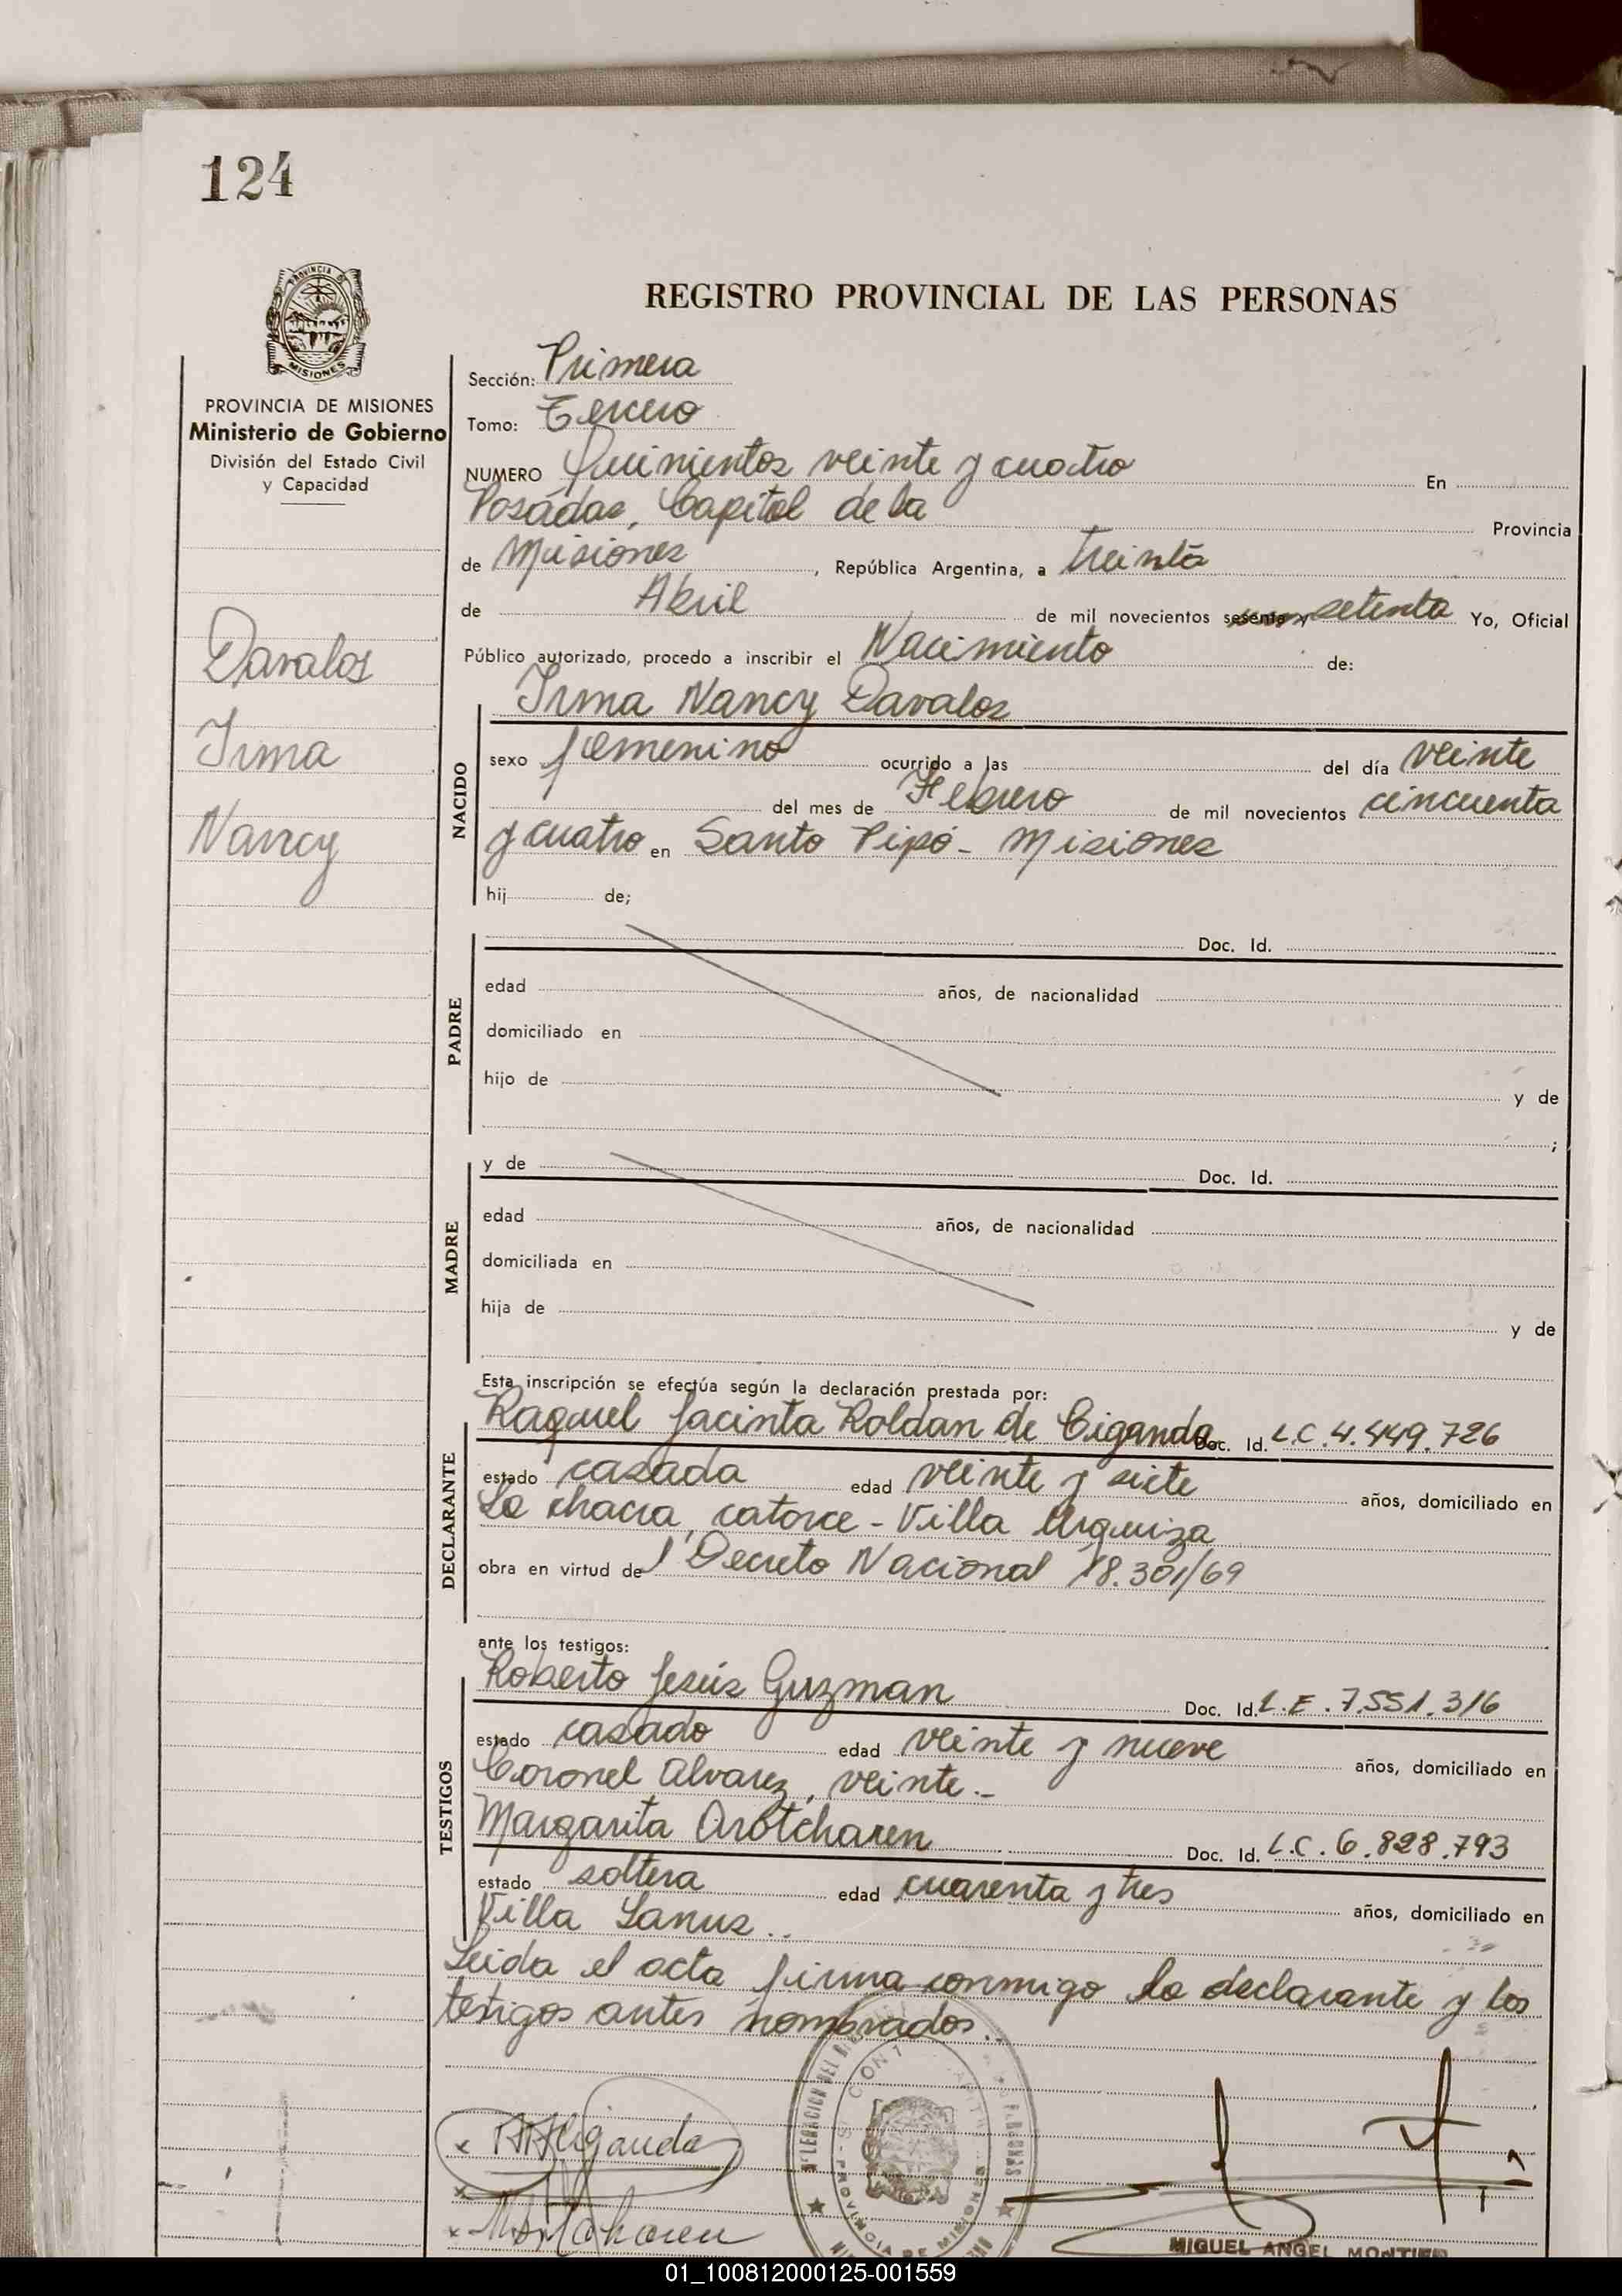 124
PROVINCIA DE MISIONES
Ministerio de Gobierno
División del Estado Civil
y Capacidad
Davalos
Irma
Nancy
REGISTRO PROVINCIAL DE LAS PERSONAS
Sección: Primera
Tomo: Tercero
NUMERO Quinientos veinte y cuatro En
Posadas, Capital de la Provincia
de Misiones, República Argentina, a treinta
de Abril de mil novecientos sesenta y setenta Yo, Oficial
Público autorizado, procedo a inscribir el Nacimiento de:
Irma Nancy Davalos
NACIDO
sexo femenino ocurrido a las del día veinte
del mes de Febrero de mil novecientos cincuenta
y cuatro en Santo Pipó - Misiones
hij de;
PADRE
Doc. Id.
edad años, de nacionalidad
domiciliado en
hijo de y de
;
MADRE
y de Doc. Id.
edad años, de nacionalidad
domiciliada en
hija de y de
Esta inscripción se efectúa según la declaración prestada por:
DECLARANTE
Raquel Jacinta Roldan de Ciganda Doc. Id. L.C. 4.449.726
estado casada edad veinte y siete años, domiciliado en
La chacra, catorce - Villa Urquiza
obra en virtud del Decreto Nacional 18.301/69
ante los testigos:
TESTIGOS
Roberto Jesús Guzman Doc. Id. L.E. 7.551.316
estado casado edad veinte y nueve años, domiciliado en
Coronel Alvarez, veinte.-
Margarita Arotcharen Doc. Id. L.C. 6.828.793
estado soltera edad cuarenta y tres años, domiciliado en
Villa Lanus..
Leida el acta firma conmigo la declarante y los
testigos antes nombrados..
PROVINCIA DE MISIONES
MIGUEL ANGEL
01_100812000125-001559